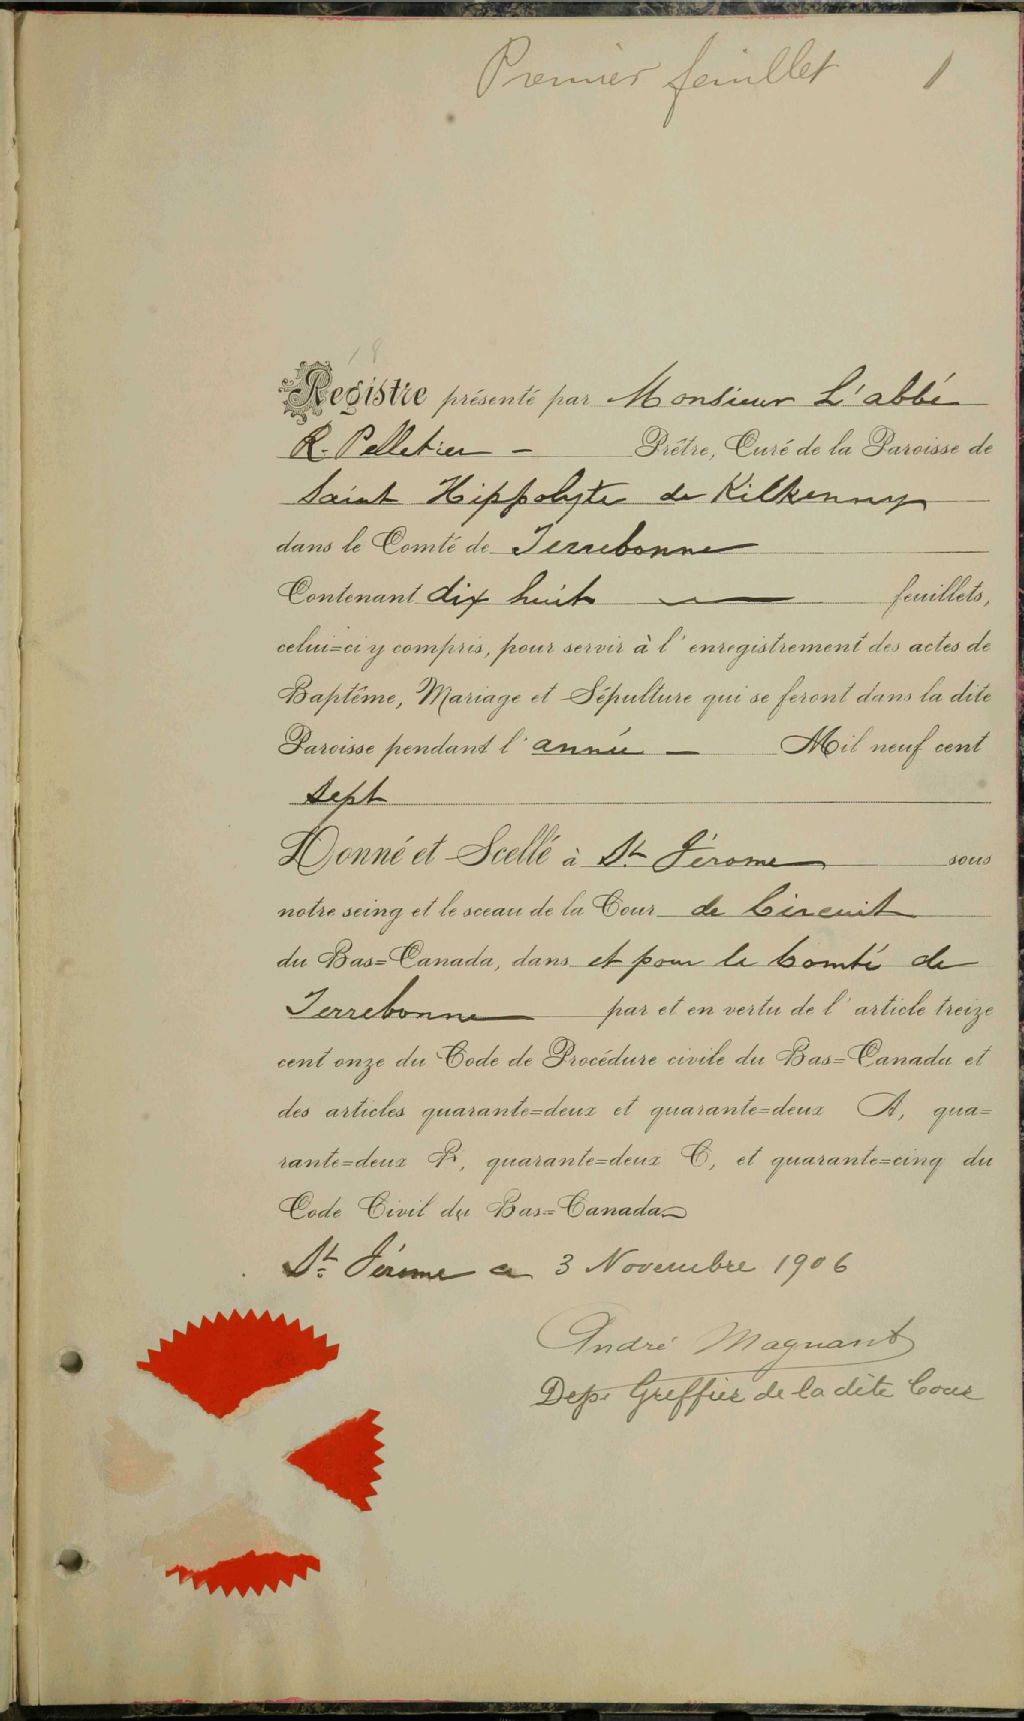 Premier feuillet 1
18
Registre présenté par Monsieur L'abbé
R. Pelletier — Prêtre, Curé de la Paroisse de
Saint Hippolyte de Kilkenny
dans le Comté de Terrebonne
Contenant dix huit — feuillets,
celui=ci y compris, pour servir à l'enregistrement des actes de
Baptême, Mariage et Sépulture qui se feront dans la dite
Paroisse pendant l'année — Mil neuf cent
sept
Donné et Scellé à St Jérome sous
notre seing et le sceau de la Cour de Circuit
du Bas=Canada, dans et pour le Comté de
Terrebonne par et en vertu de l'article treize
cent onze du Code de Procédure civile du Bas=Canada et
des articles quarante=deux et quarante=deux A, qua=
rante=deux B, quarante=deux C, et quarante=cinq du
Code Civil du Bas=Canada
St Jérome ce 3 Novembre 1906
André Magnant
Dep. Greffier de la dite Cour